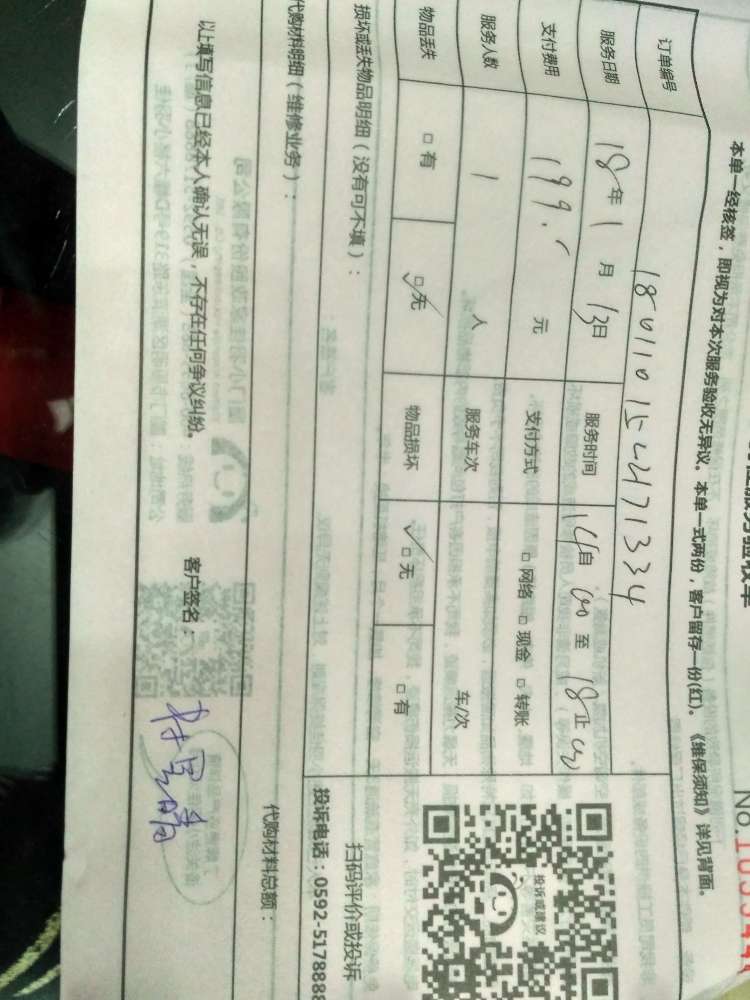 本单一经核签，即视为对本次服务验收无异议。本单一式两份，客户留存一份(红)。《维保须知》详见背面。
订单编号
服务日期 18年1月13日 服务时间 14 自 00 至 18 止 00
支付费用 199. 元 支付方式 □ 网络 □ 现金 □ 转账
服务人数 1 人 服务车次 车/次
物品丢失 □ 有 □ 无 物品损坏 □ 无 □ 有
损坏或丢失物品明细（没有可不填）：
代购材料明细（维修业务）：
代购材料总额：
以上填写信息已经本人确认无误，不存在任何争议纠纷。 客户签名：
投诉或建议
扫码评价或投诉
投诉电话：0592-5178888